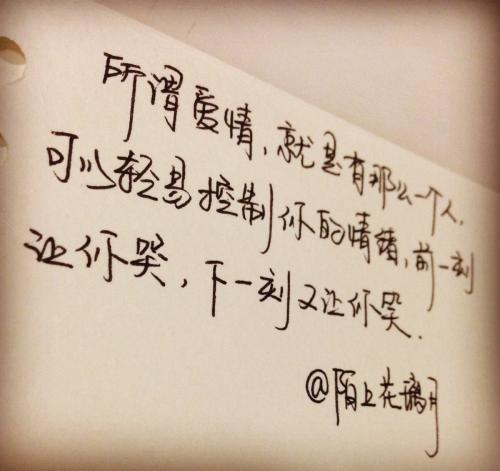 所谓爱情，就是有那么一个人，
可以轻易控制你的情绪，前一刻
让你哭，下一刻又让你笑.
@陌上花璃月